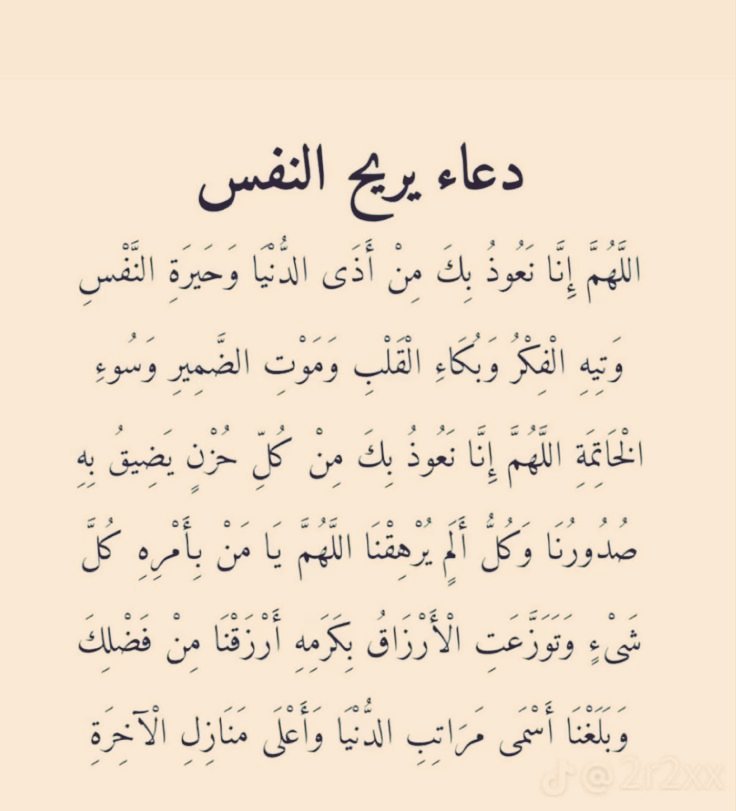 دعاء يريح النفس
اللَّهُمَّ إِنَّا نَعُوذُ بِكَ مِنْ أَذَى الدُّنْيَا وَحَيرَةِ النَّفْسِ
وَتِيهِ الْفِكْرُ وَبُكَاءِ الْقَلْبِ وَمَوْتِ الضَّمِيرِ وَسُوءِ
الْخَاتِمَةِ اللَّهُمَّ إِنَّا نَعُوذُ بِكَ مِنْ كُلِّ حُزْنٍ يَضِيقُ بِهِ
صُدُورُنَا وَكُلُّ أَلَمٍ يُرْهِقْنَا اللَّهُمَّ يَا مَنْ بِأَمْرِهِ كُلَّ
شَىْءٍ وَتَوَزَّعَتِ الْأَرْزَاقُ بِكَرَمِهِ أَرْزَقْنَا مِنْ فَضْلِكَ
وَبَلَغْنَا أَسْمَى مَرَاتِبِ الدُّنْيَا وَأَعْلَى مَنَازِلِ الْآخِرَةِ
@2r2xx